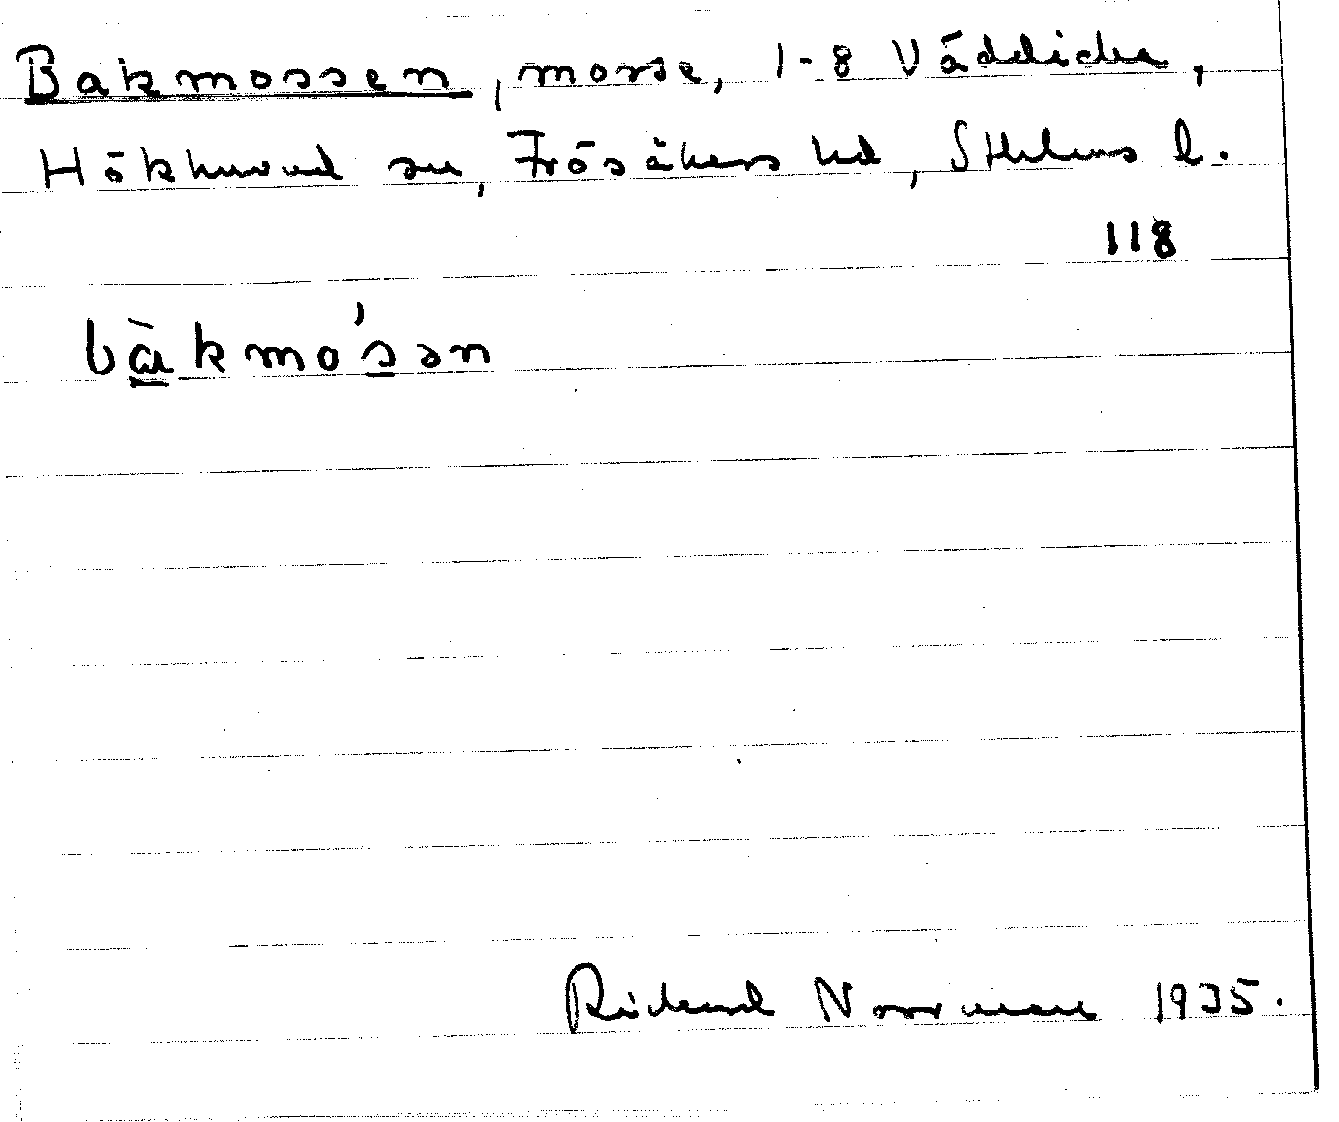 Bakmossen, mosse, 1-8 Väddicka,
Hökhuvud sn, Frösåkers hd, Sthlms l.
118
bàkmo´sən
Richard Norrman 1935.